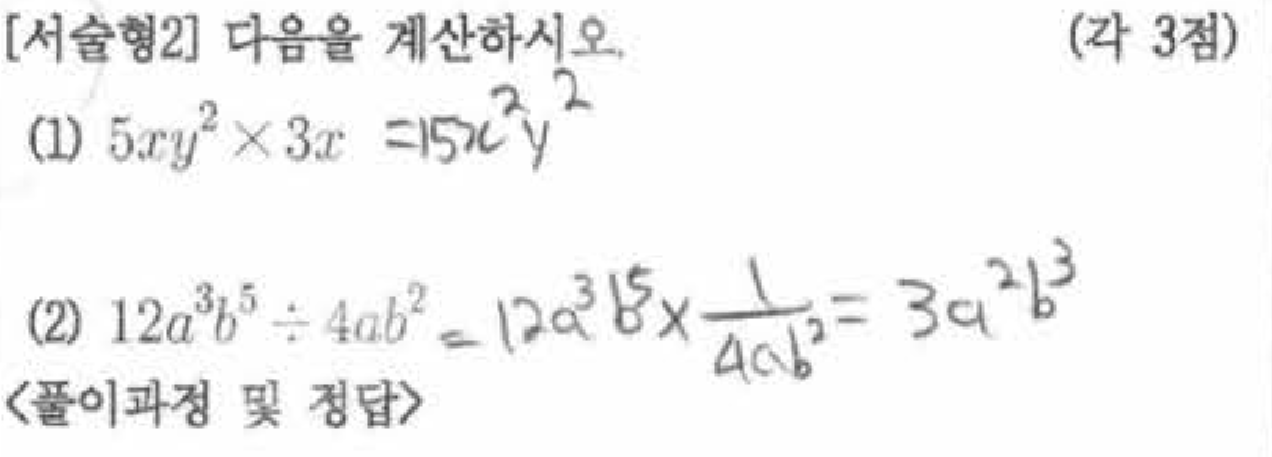 [서술형2] 다음을 계산하시오. (각 3점)
(1) 5xy² × 3x =15x²y²
(2) 12a³b⁵ ÷ 4ab² = 12a³b⁵ × 1/4ab² = 3a²b³
<풀이과정 및 정답>